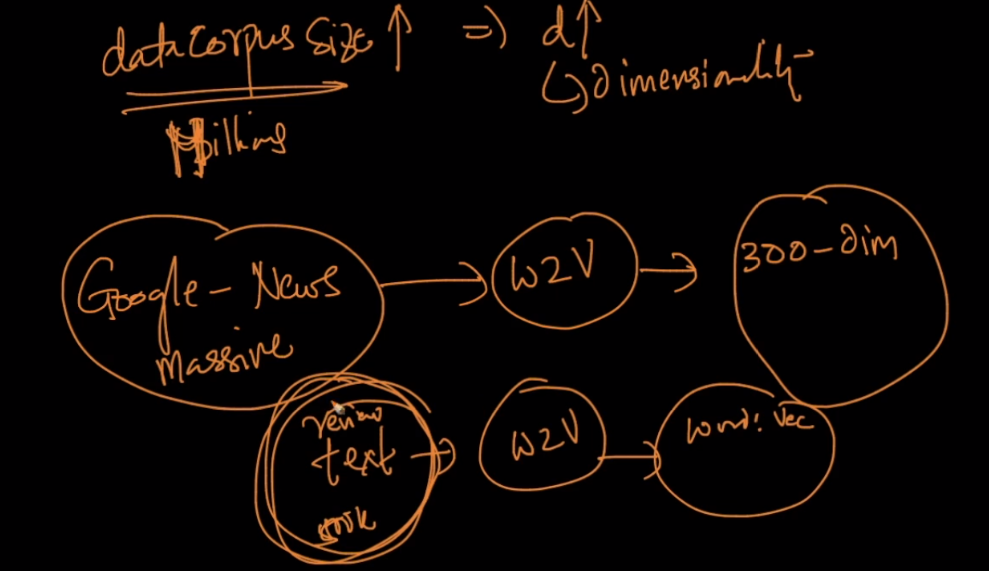 data corpus size ↑ => d↑
↳ dimensionality
Google - News
massive
W2V
300-dim
review
text
W2V
word: Vec